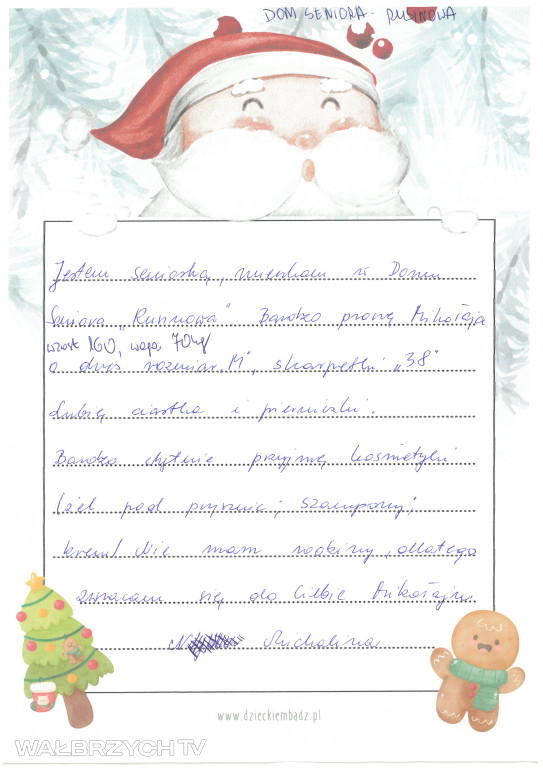 DOM SENIORA - RUSINOWA
Jestem seniorką, mieszkam w Domu
Seniora „Rusinowa" Bardzo proszę Mikołaja
wzrost 160, waga 70 kg
o dres rozmiar „M", skarpetki „38"
Lubię ciastka i pierniczki.
Bardzo chętnie przyjmę kosmetyki
(żel pod prysznic; szampony;
krem) Nie mam rodziny, dlatego
zwracam się do Ciebie Mikołaju.
Michalina
www.dzieckiembadz.pl
WAŁBRZYCH TV